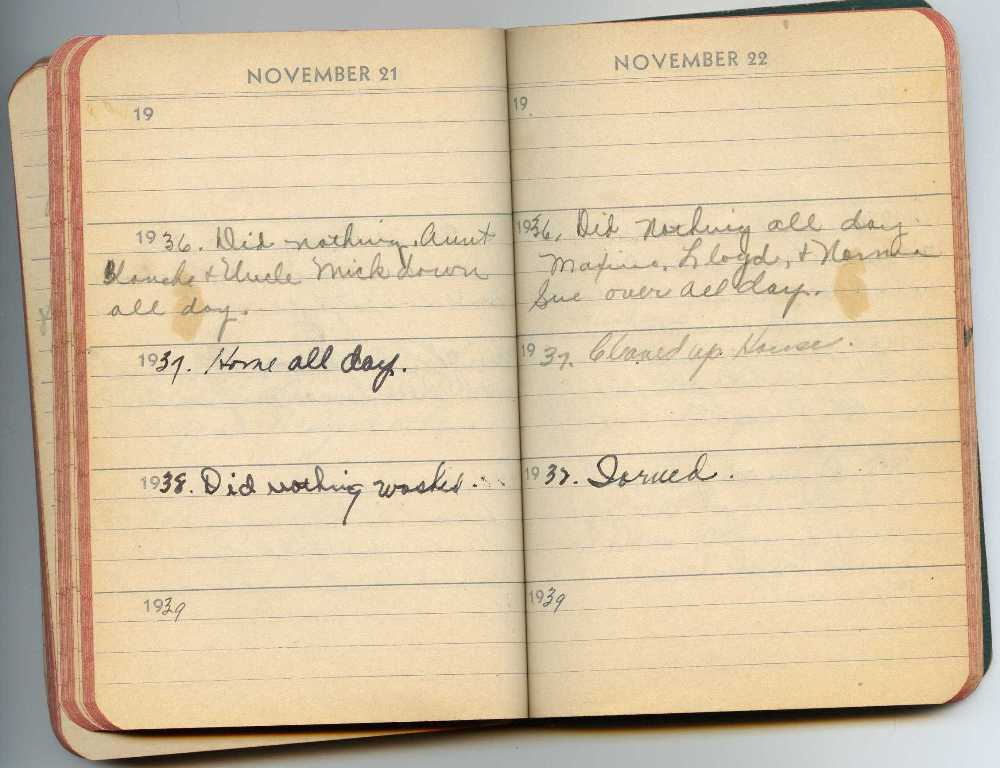 NOVEMBER 21
19
1936. Did nothing. Aunt
Blanche & Uncle Mick down
all day.
1937. Home all day.
1938. Did nothing washed.
1939
NOVEMBER 22
19
1936. Did nothing all day
Maxine, Lloyd, & Norma
Sue over all day.
1937. Cleaned up House.
1937. Ironed.
1939